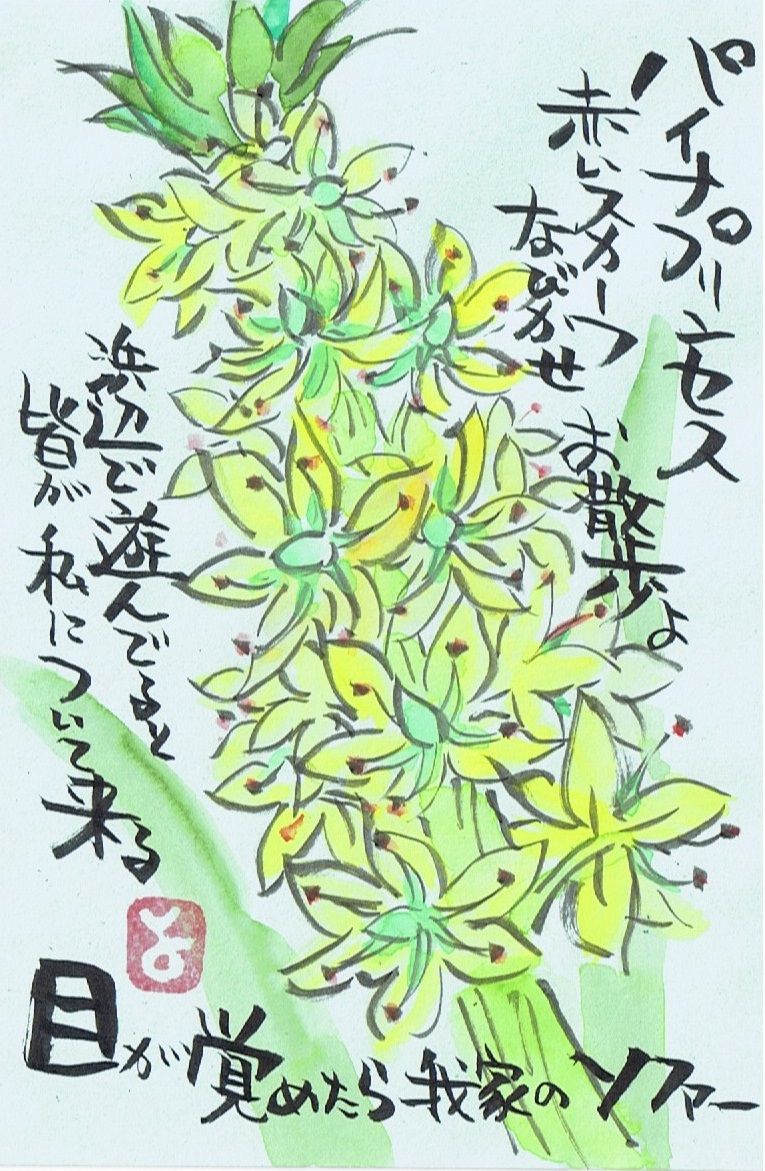 パイナプリンセス
赤いスカーフ
なびかせ お散歩よ
浜辺で遊んでると
皆が私について来る
と
目が覚めたら我家のソファー